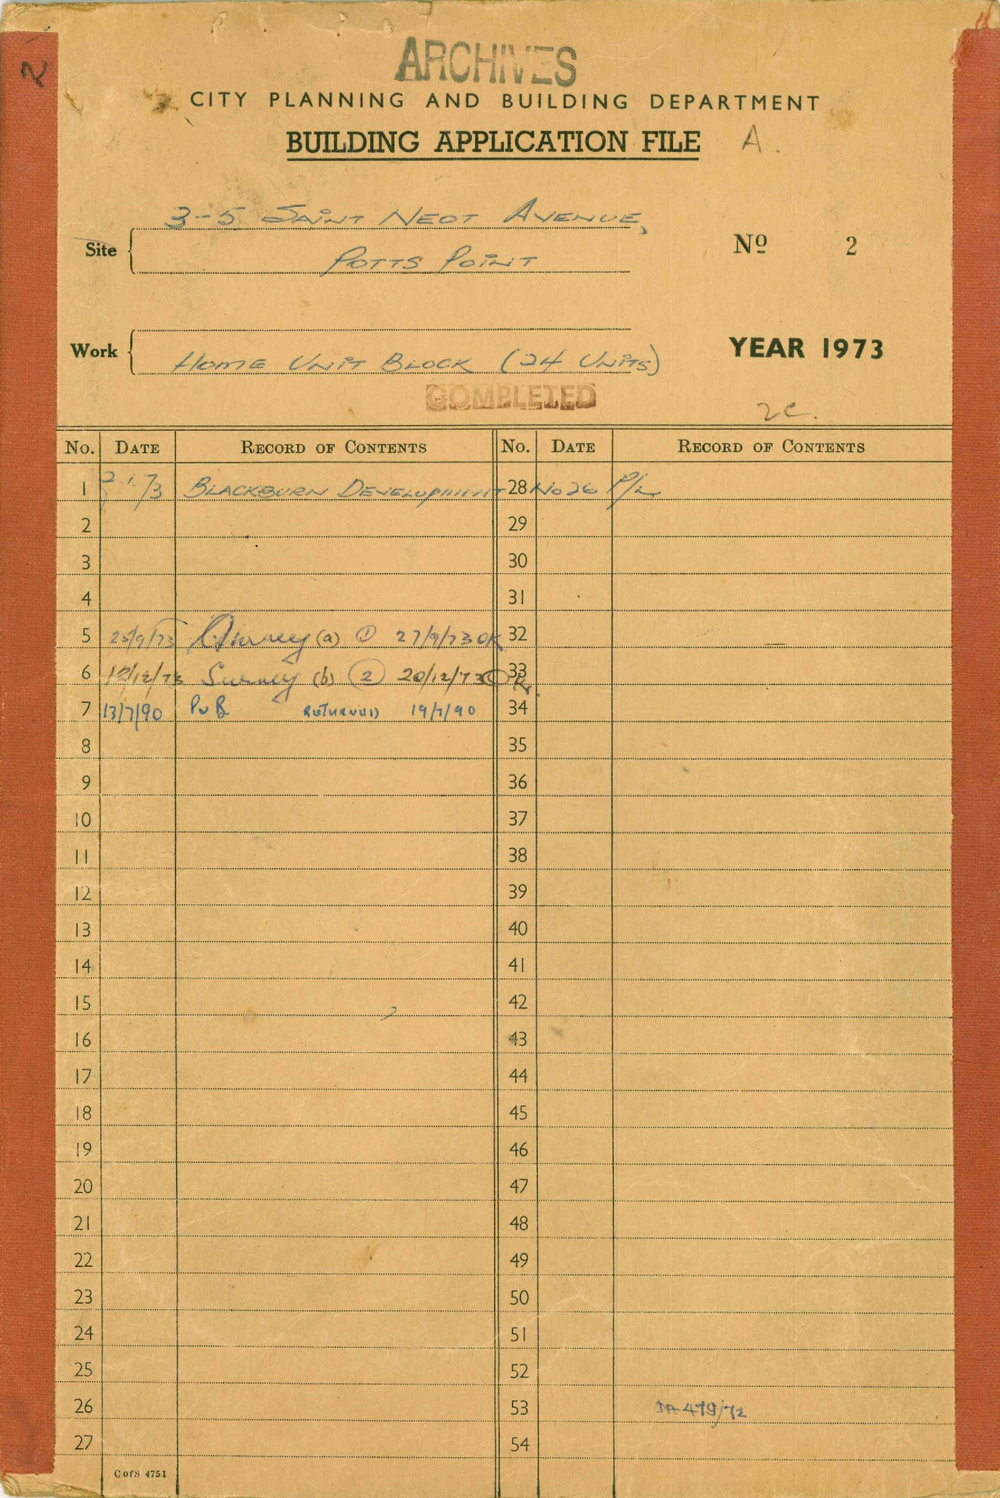 2
ARCHIVES
CITY PLANNING AND BUILDING DEPARTMENT
BUILDING APPLICATION FILE A.
Site 3-5 SAINT NEOT AVENUE,
POTTS POINT
Nº 2
Work HOME UNIT BLOCK (24 UNITS)
YEAR 1973
COMPLETED
2C.
No. DATE RECORD OF CONTENTS No. DATE RECORD OF CONTENTS
1 2.1.73 BLACKBURN DEVELOPMENT 28 No 26 P/L
2 29
3 30
4 31
5 25/9/73 Survey (a) 1 27/9/73 OK 32
6 19/12/73 Survey (b) 2 20/12/73 OK. 33
7 13/7/90 PUB RETURNED 19/7/90 34
8 35
9 36
10 37
11 38
12 39
13 40
14 41
15 42
16 43
17 44
18 45
19 46
20 47
21 48
22 49
23 50
24 51
25 52
26 53 DA 479/72
27 54
C of S 4751